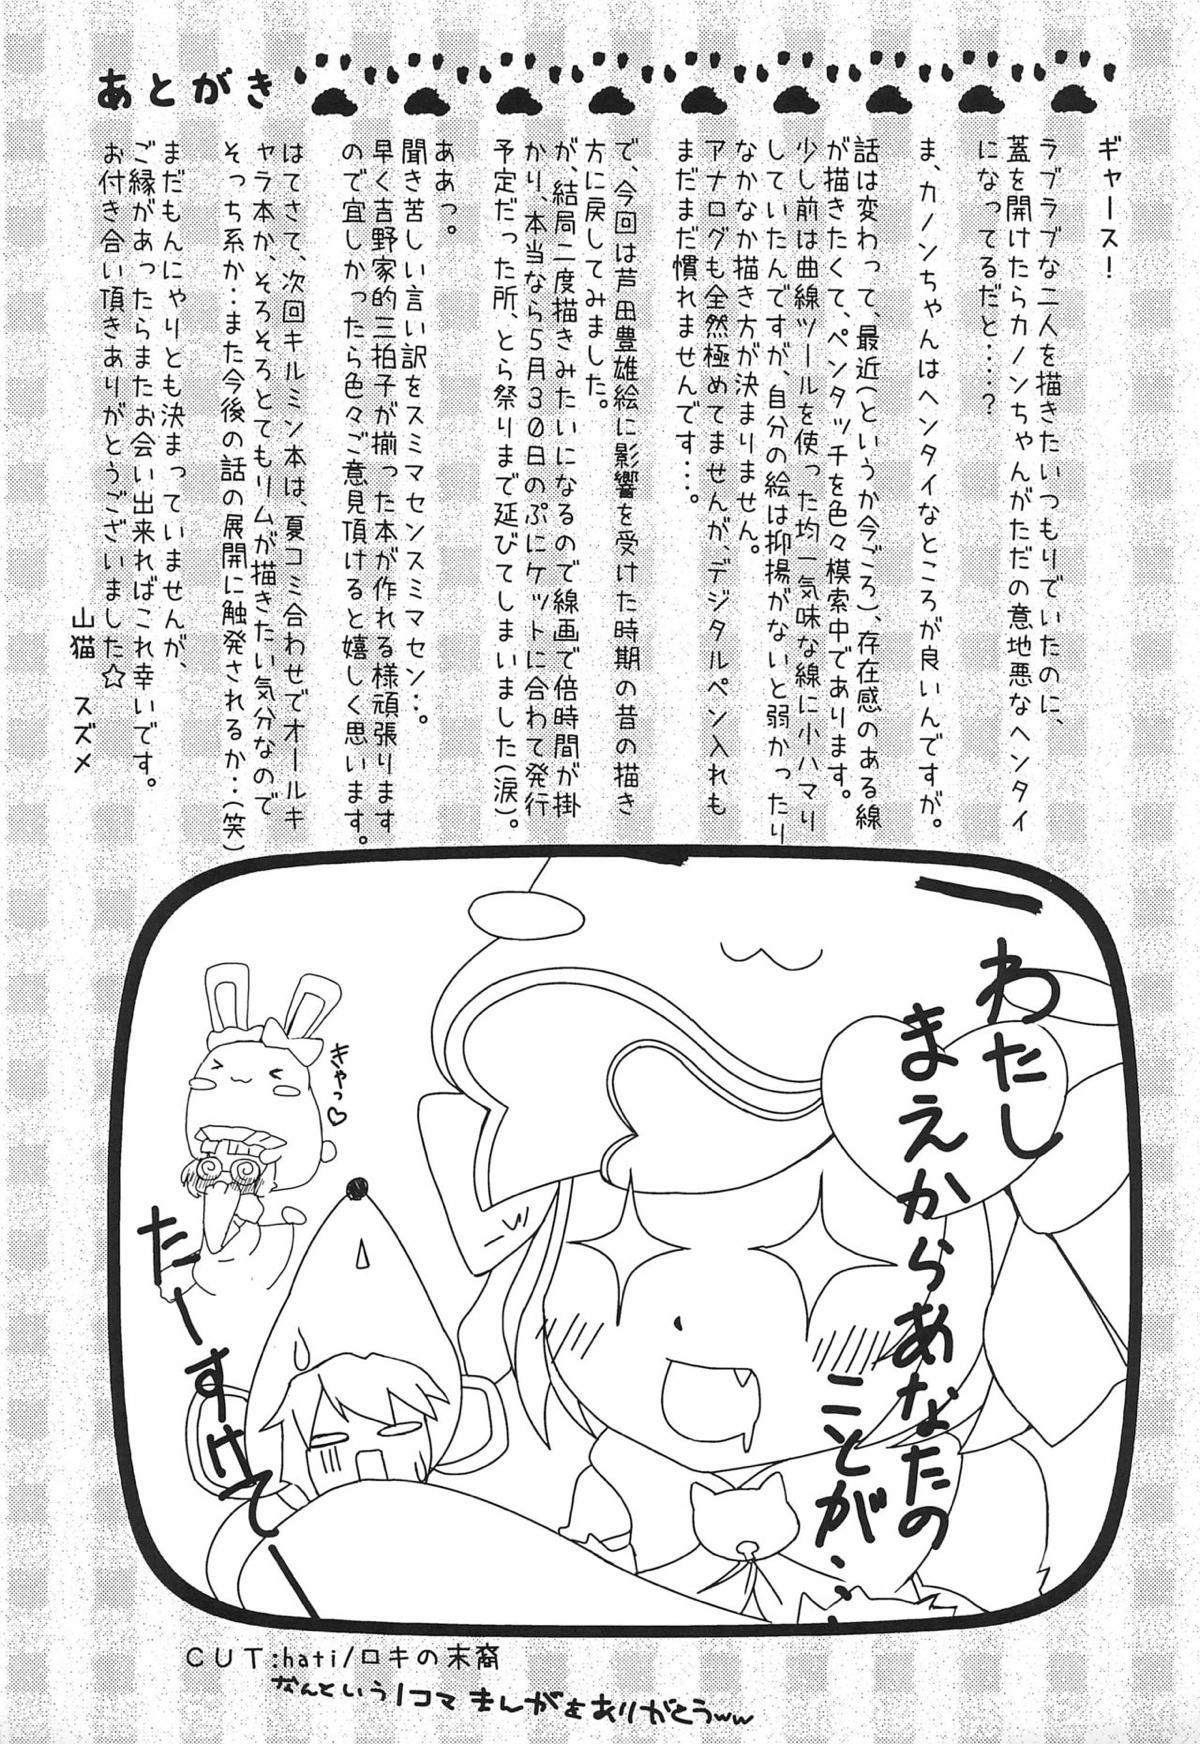 あとがき
ギャース！
ラブラブな二人を描きたいつもりでいたのに、
蓋を開けたらカノンちゃんがただの意地悪なヘンタイ
になってるだと‥‥？
ま、カノンちゃんはヘンタイなところが良いんですが。
話は変わって、最近(というか今ごろ)、存在感のある線
が描きたくて、ペンタッチを色々模索中であります。
少し前は曲線ツールを使った均一気味な線に小ハマり
していたんですが、自分の絵は抑揚がないと弱かったり
なかなか描き方が決まりません。
アナログも全然極めてませんが、デジタルペン入れも
まだまだ慣れませんです‥‥。
で、今回は芦田豊雄絵に影響を受けた時期の昔の描き
方に戻してみました。
が、結局二度描きみたいになるので線画で倍時間が掛
かり、本当なら5月30日のぷにケットに合わせて発行
予定だった所、とら祭りまで延びてしまいました(涙)。
ああっ。
聞き苦しい言い訳をスミマセンスミマセン‥。
早く吉野家的三拍子が揃った本が作れる様頑張ります
ので宜しかったら色々ご意見頂けると嬉しく思います。
はてさて、次回キルミン本は、夏コミ合わせでオールキ
ャラ本か、そろそろとてもリムが描きたい気分なので
そっち系か‥また今後の話の展開に触発されるか‥(笑)
まだもんにゃりとも決まっていませんが、
ご縁があったらまたお会い出来ればこれ幸いです。
お付き合い頂きありがとうございました☆
山猫　スズメ
ーわたし
まえからあなたの
ことが‥‥
きゃっ♡
たーすけてー
CUT:hati/ロキの末裔
なんという1コマまんがをありがとうww